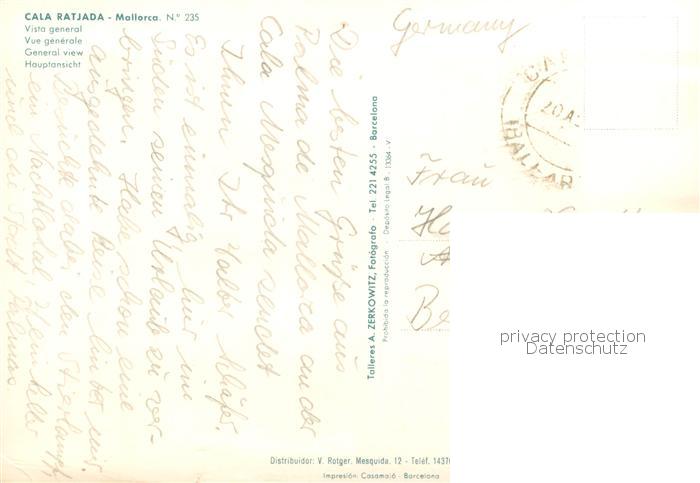 CALA RATJADA - Mallorca. N.º 235
Vista general
Vue générale
General view
Hauptansicht
Die besten Grüße aus
Palma de Mallorca an der
Cala Mesquida sendet
Ihnen Ihr Walter Schäfer.
Es ist einmalig hier im
Süden seinen Urlaub zu ver-
bringen. Habe schon eine
ausgedehnte Reise hinter mir.
Besuchte dabei den Stierkampf,
ein Nachtlokal,
und die Stadt Palmas
Talleres A. ZERKOWITZ, Fotógrafo - Tel. 221 4255 - Barcelona
Prohibida la reproducción - Depósito Legal B. 13364-V
Germany
20.A
BALEAR
Frau
Be
privacy protection
Datenschutz
Distribuidor: V. Rotger. Mesquida, 12 - Teléf. 1437
Impresión: Casamajó - Barcelona